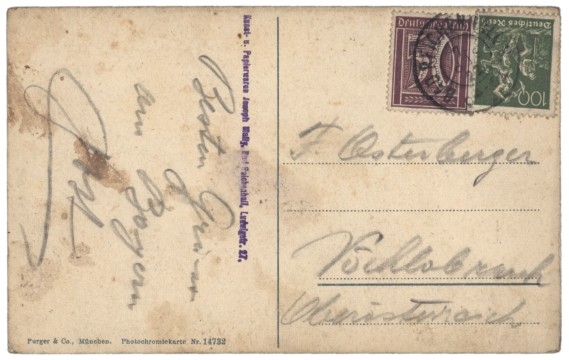 Besten Gruss
aus
Bayern
Kunst- u. Papierwaren Joseph Mally, Bad Reichenhall, Ludwigstr. 27.
Deutsches Reich
Deutsches Reich
100
F. Osterberger
Vöcklabruck
Oberösterreich
Purger & Co., München. Photochromiekarte Nr. 14732